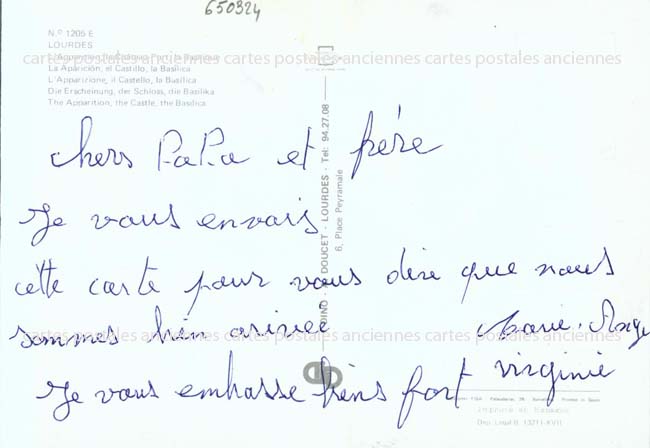 650324
N.º 1205 E
LOURDES
La Aparición, el Castillo, la Basílica
L'Apparizione, il Castello, la Basilica
Die Erscheinung, der Schloss, die Basilika
The Apparition, the Castle, the Basilica
cartes postales anciennes cartes postales anciennes cartes postales anciennes
DOUCET - LOURDES - Tel: 94.27.08
6, Place Peyramale
chers PaPa et frére
Je vous envais
cette carte pour vous dire que nous
sommes bien arivée
Marie. Ange
cartes postales anciennes cartes postales anciennes cartes postales anciennes
Je vous embasse biens fort virginie
Dep. Legal B. 13211-XVII